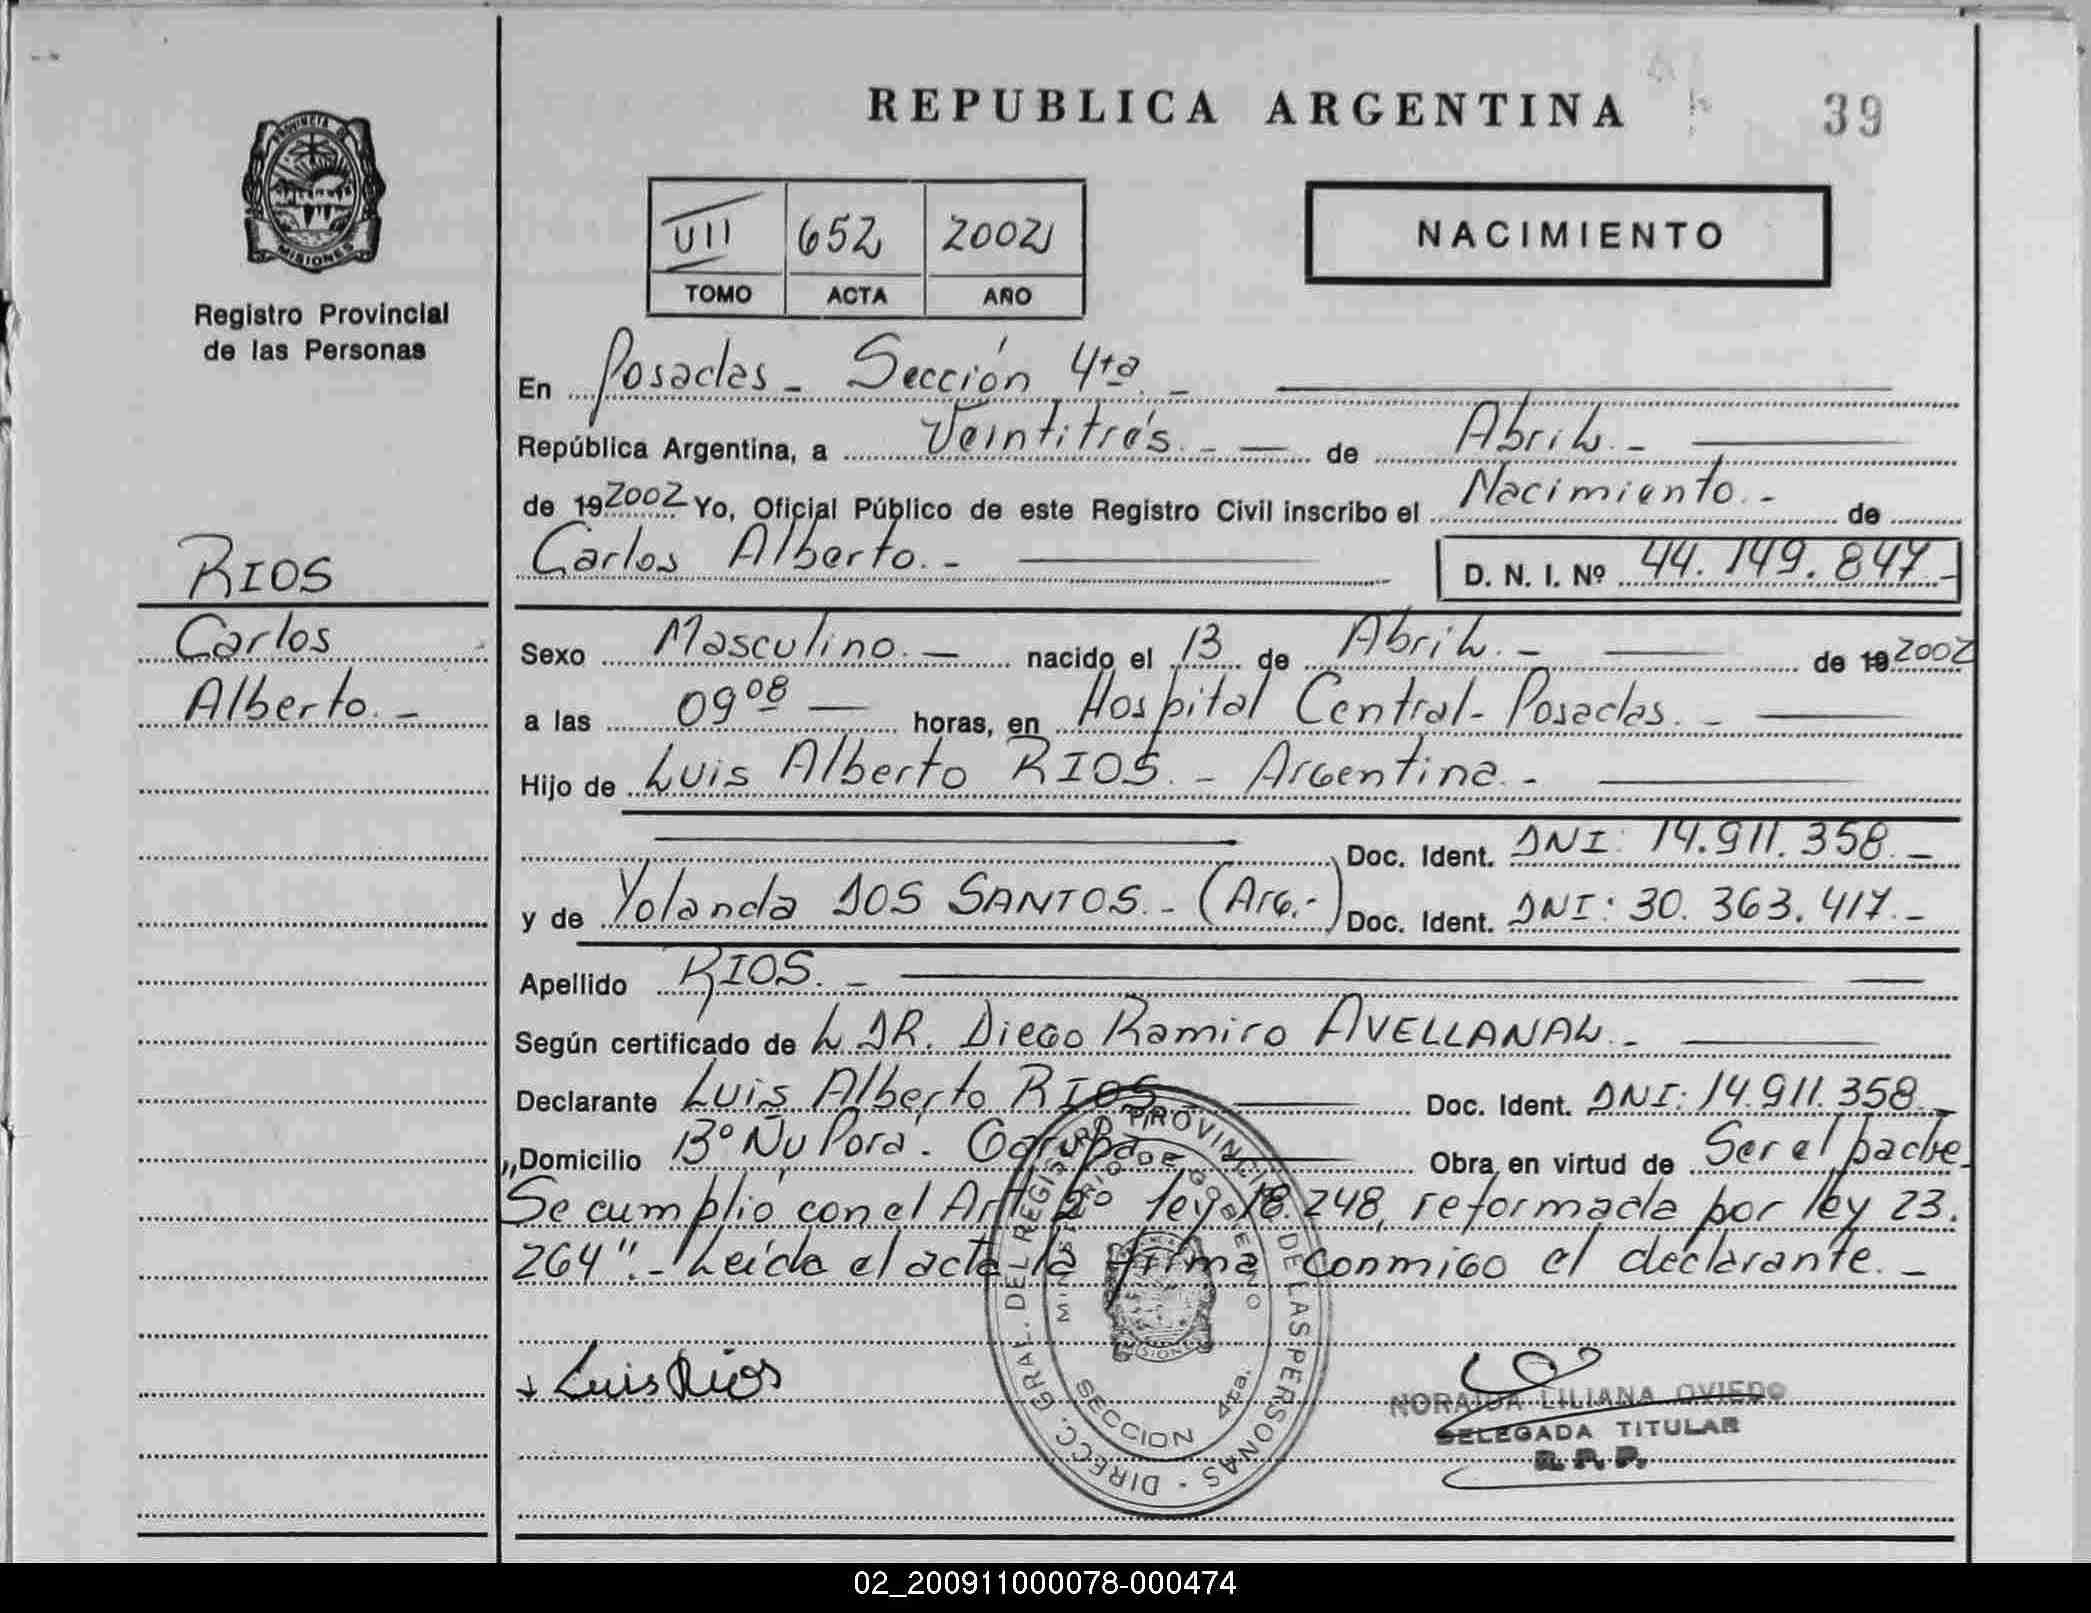 REPUBLICA ARGENTINA
39
PROVINCIA DE
MISIONES
Registro Provincial
de las Personas
VII 652 2002
TOMO ACTA AÑO
NACIMIENTO
En Posadas - Sección 4ta. -
República Argentina, a Veintitrés. - de Abril. -
de 192002 Yo, Oficial Público de este Registro Civil inscribo el Nacimiento. - de
Carlos Alberto. - D. N. I. Nº 44.149.847-
RIOS
Carlos
Alberto. -
Sexo Masculino. - nacido el 13 de Abril. - de 192002
a las 09 08 - horas, en Hospital Central - Posadas. -
Hijo de Luis Alberto RIOS. - Argentina. -
Doc. Ident. DNI: 14.911.358. -
y de Yolanda DOS SANTOS. - (Arg.-) Doc. Ident. DNI: 30.363.417. -
Apellido RIOS. -
Según certificado de L DR. Diego Ramiro AVELLANAL. -
Declarante Luis Alberto RIOS Doc. Ident. DNI: 14.911.358. -
Domicilio Bº Ñu Porá. Garupá Obra en virtud de Ser el padre.
"Se cumplió con el Art. 2º ley 18.248, reformada por ley 23.
264". - Leída el acta la firma conmigo el declarante. -
Luis Rios
DIRECC. GRAL. DEL REGISTRO PROVINCIAL DE LAS PERSONAS
MINISTERIO DE GOBIERNO
MISIONES
SECCION 4ta.
NORAIDA LILIANA OVIEDO
DELEGADA TITULAR
R. P. P.
02_200911000078-000474